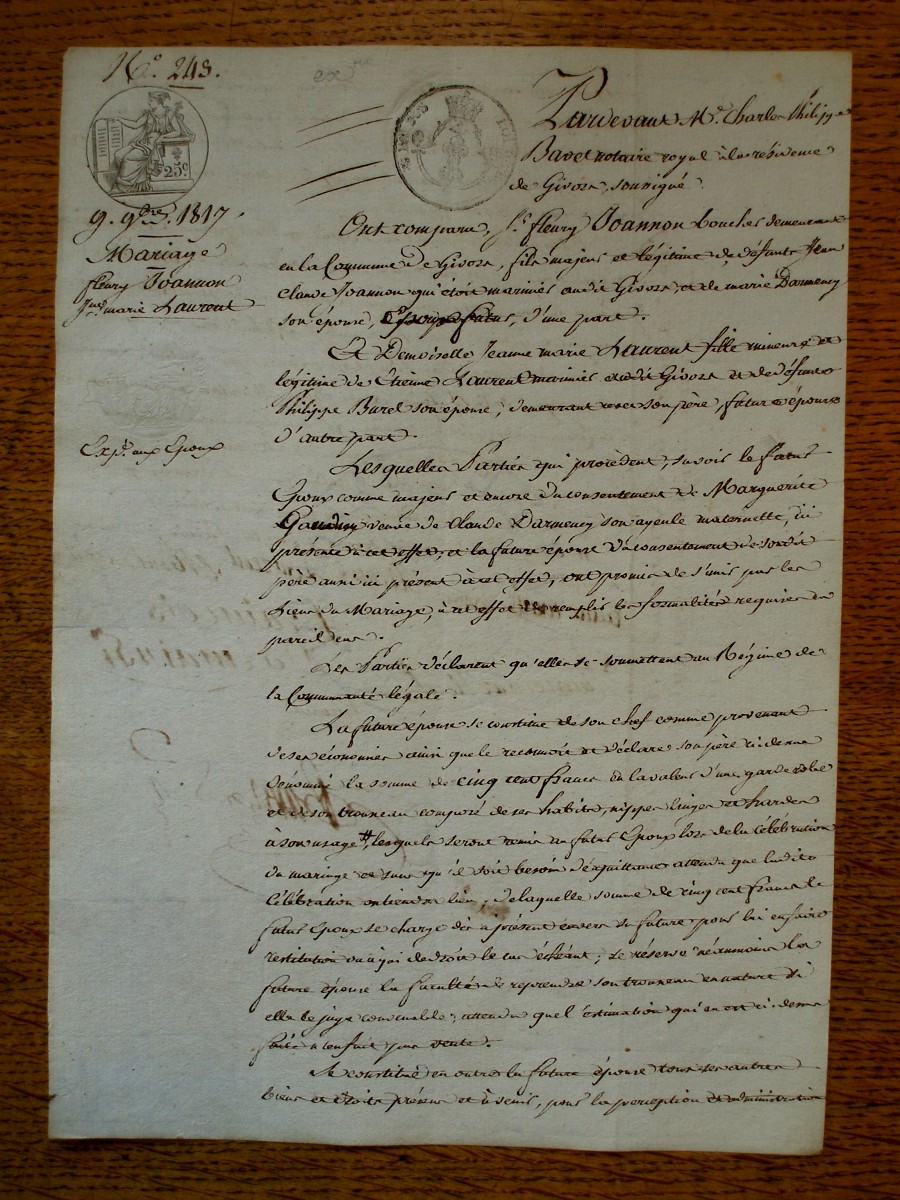 N.º 248.
25c
9. 9bre. 1817.
Mariage
fleury Joannon
Jne marie Laurent
Exp.on aux Epoux
Pardevant Me. Charles Philippe
Bavet notaire royal à la résidence
de Givors, soussigné
Ont comparu, Sr. fleury Joannon boucher demeurant
en la Commune de Givors, fils majeur et légitime de défunts Jean
claude Joannon qui étoit marinier audit Givors, et de marie Darmency
son épouse, d'une part.
Et Demoiselle Jeanne marie Laurent fille mineure et
légitime de Etienne Laurent marinier audit Givors et de défunte
Philippe Burel son épouse, demeurant avec son père, future épouse
d'autre part.
Lesquelles Parties qui procèdent, savoir le futur
Epoux comme majeur et encore du consentement de Marguerite
veuve de claude Darmency son ayeule maternelle, ici
présente à cet effet, et la future épouse du consentement de sondit
père aussi ici présent à cet effet, ont promis de s'unir par les
Liens du Mariage, à cet effet de remplir les formalités requises en
pareil cas.
Les Parties déclarent qu'elles se soumettent au Régime de
la Communauté légale.
La future épouse se constitue de son chef comme provenant
de ses économies ainsi que le reconnoit et déclare son père ci-dessus
dénommé la somme de cinq cent francs en la valeur d'une garderobe
et de son trousseau composé de ses habits, nippes linges et hardes
à son usage, lesquels seront remis au futur Epoux lors de la célébration
du mariage sans qu'il soit besoin d'autre quittance attendu que ladite
célébration en tiendra lieu, de laquelle somme de cinq cent francs le
futur Epoux se charge dès à présent envers sa future pour lui en faire
restitution ou à qui de droit le cas échéant; se réserve néanmoins la
future épouse la faculté de reprendre son trousseau en nature si
elle le juge convenable, attendu que l'estimation qui en est ci-dessus
faite n'en fait pas vente.
Se constitue en outre la future épouse tous ses autres
biens et droits présens et à venir, pour la perception et administration